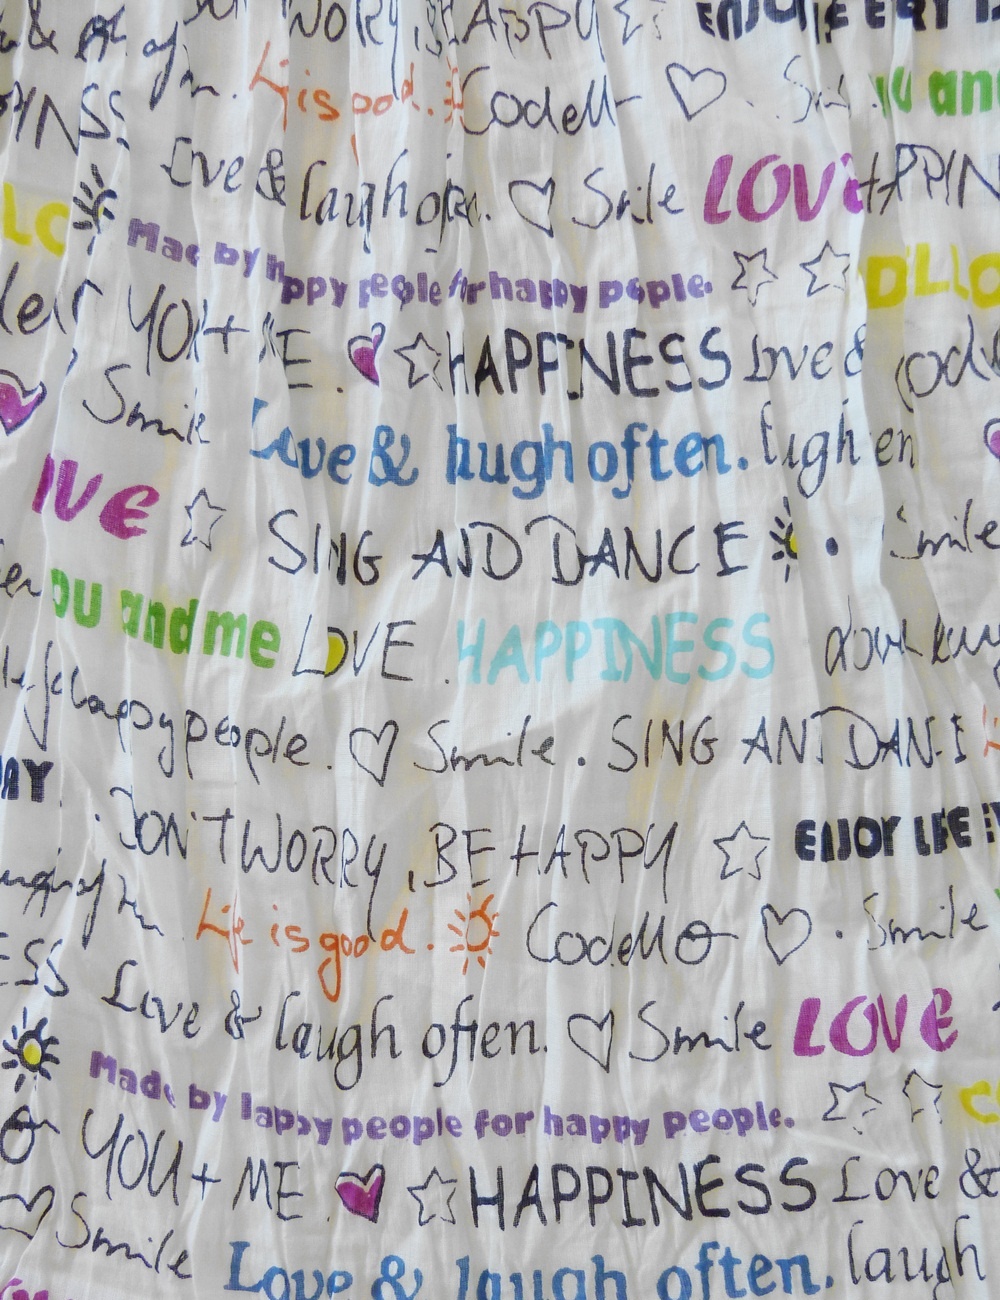 WORRY, BE HAPPY ENJOY
Life is good. Codello
Love & laugh often. Smile LOVE HAPPIN
Made by happy people for happy people.
YOU + ME. HAPPINESS Love &
Smile Love & laugh often.
SING AND DANCE Smile
ou and me LOVE. HAPPINESS
happy people. Smile. SING AND DANCE
AY DON'T WORRY, BE HAPPY ENJOY LIFE
Life is good. Codello Smile
ESS Love & laugh often. Smile LOVE
Made by happy people for happy people.
YOU + ME HAPPINESS Love &
Smile Love & laugh often. laugh